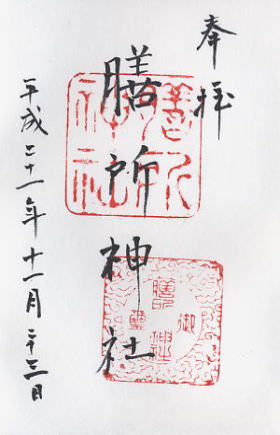 奉拝
膳所神社
膳所
神社
平成二十一年十一月二十三日